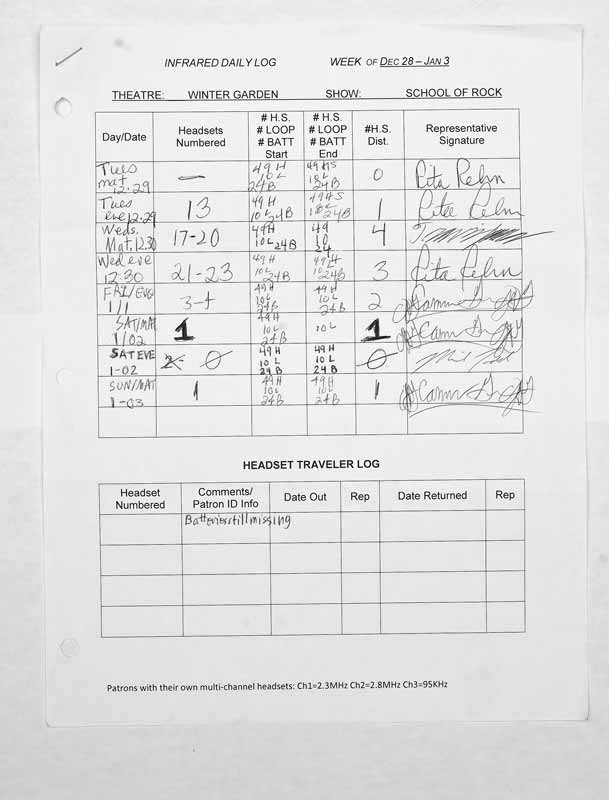 INFRARED DAILY LOG WEEK OF DEC 28 – JAN 3
THEATRE: WINTER GARDEN SHOW: SCHOOL OF ROCK
Day/Date Headsets Numbered # H.S. # LOOP # BATT Start # H.S. # LOOP # BATT End #H.S. Dist. Representative Signature
Tues mat 12.29 — 49H 10L 24B 49HS 18L 24B 0 Rita Rehn
Tues eve 12.29 13 49H 10L 24B 49HS 18L 24B 1 Rita Rehn
Weds. Mat. 12.30 17-20 49H 10L 24B 49 10 24 4
Wed eve 12:30 21-23 49H 10L 24B 49H 10L 24B 3 Rita Rehn
FRI/EVG 1/1 3-4 49H 10L 24B 49H 10L 24B 2
SAT/MAT 1/02 1 49H 10L 24B 10L 1
SAT EVE 1-02 0 49H 10L 24B 49H 10L 24B 0
SUN/MAT 1-03 1 49H 10L 24B 49H 10L 24B 1
HEADSET TRAVELER LOG
Headset Numbered Comments/ Patron ID Info Date Out Rep Date Returned Rep
Batteries still missing
Patrons with their own multi-channel headsets: Ch1=2.3MHz Ch2=2.8MHz Ch3=95KHz